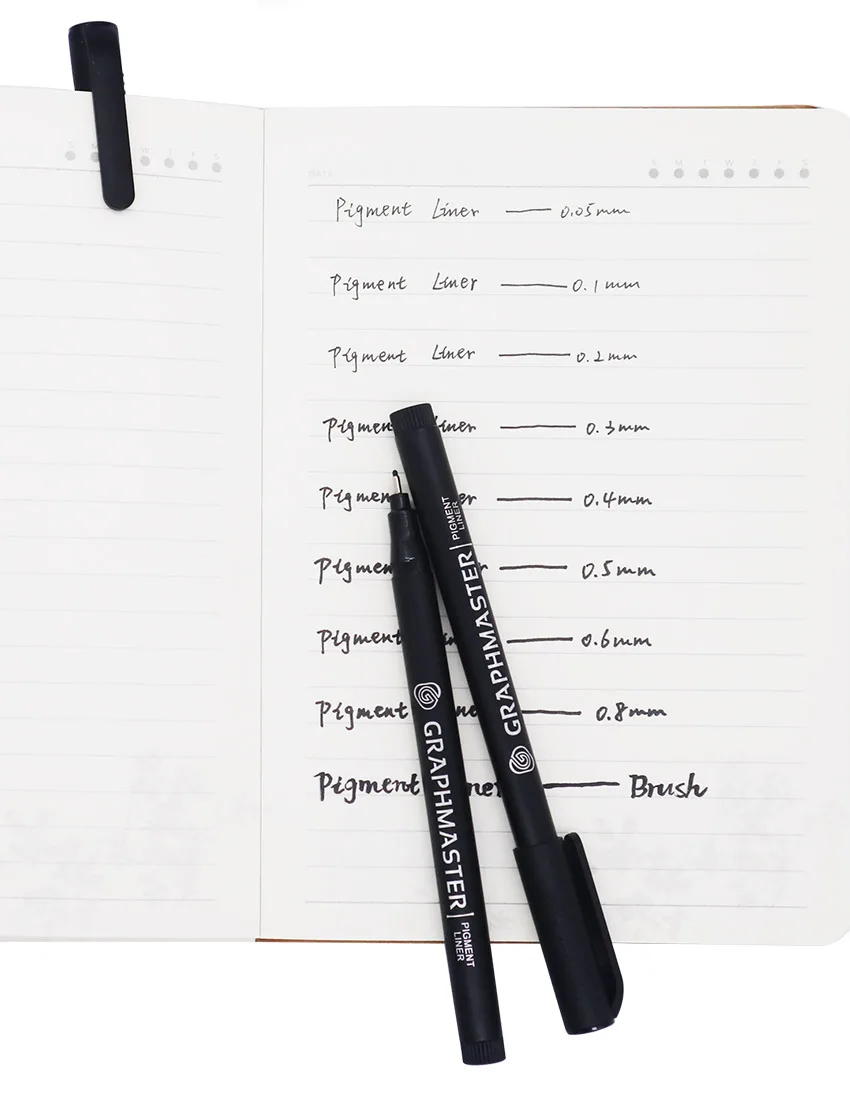 S M T W T F S
S M W T F S
DATE
Pigment Liner — 0.05mm
Pigment Liner — 0.1mm
Pigment Liner — 0.2mm
Pigmen iner — 0.3mm
Pigmen er — 0.4mm
Pigmen r — 0.5mm
Pigment in — 0.6mm
Pigment ne — 0.8mm
Pigment ner — Brush
GRAPHMASTER | PIGMENT
LINER
GRAPHMASTER | PIGMENT
LINER